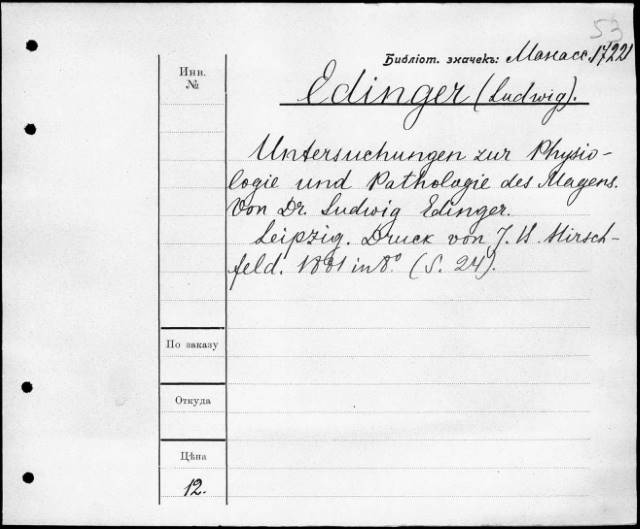 53
Библіот. значекъ: Манасс. 1722
Инв.
№
Edinger (Ludwig).
Untersuchungen zur Physio-
logie und Pathologie des Magens.
Von Dr. Ludwig Edinger.
Leipzig. Druck von J. B. Hirsch-
feld. 1881 in 8º. (S. 24).
По заказу
Откуда
Цѣна
12.